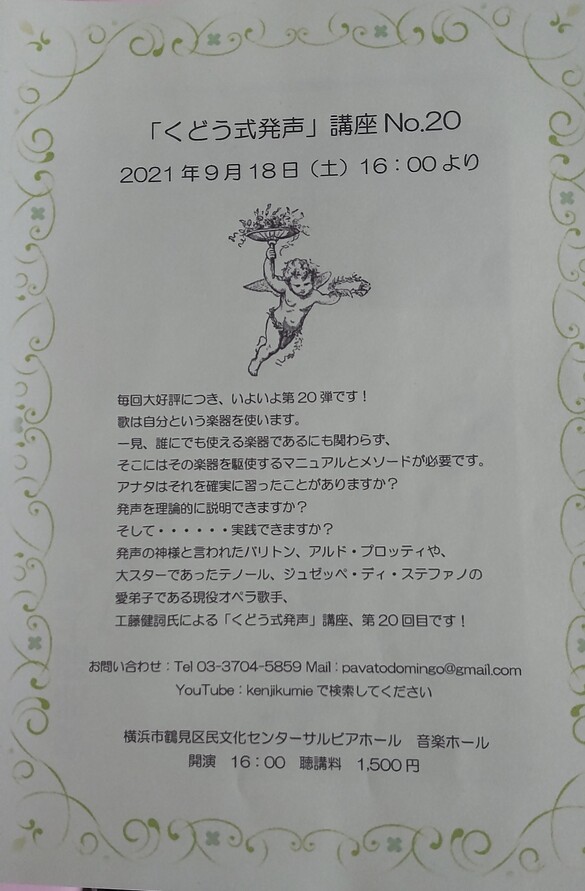 「くどう式発声」講座No.20
2021年9月18日（土）16：00より
毎回大好評につき、いよいよ第20弾です！
歌は自分という楽器を使います。
一見、誰にでも使える楽器であるにも関わらず、
そこにはその楽器を駆使するマニュアルとメソードが必要です。
アナタはそれを確実に習ったことがありますか？
発声を理論的に説明できますか？
そして・・・・・・実践できますか？
発声の神様と言われたバリトン、アルド・プロッティや、
大スターであったテノール、ジュゼッペ・ディ・ステファノの
愛弟子である現役オペラ歌手、
工藤健詞氏による「くどう式発声」講座、第20回目です！
お問い合わせ：Tel 03-3704-5859 Mail：pavatodomingo@gmail.com
YouTube：kenjikumieで検索してください
横浜市鶴見区民文化センターサルビアホール　音楽ホール
開演　16：00　聴講料　1,500円